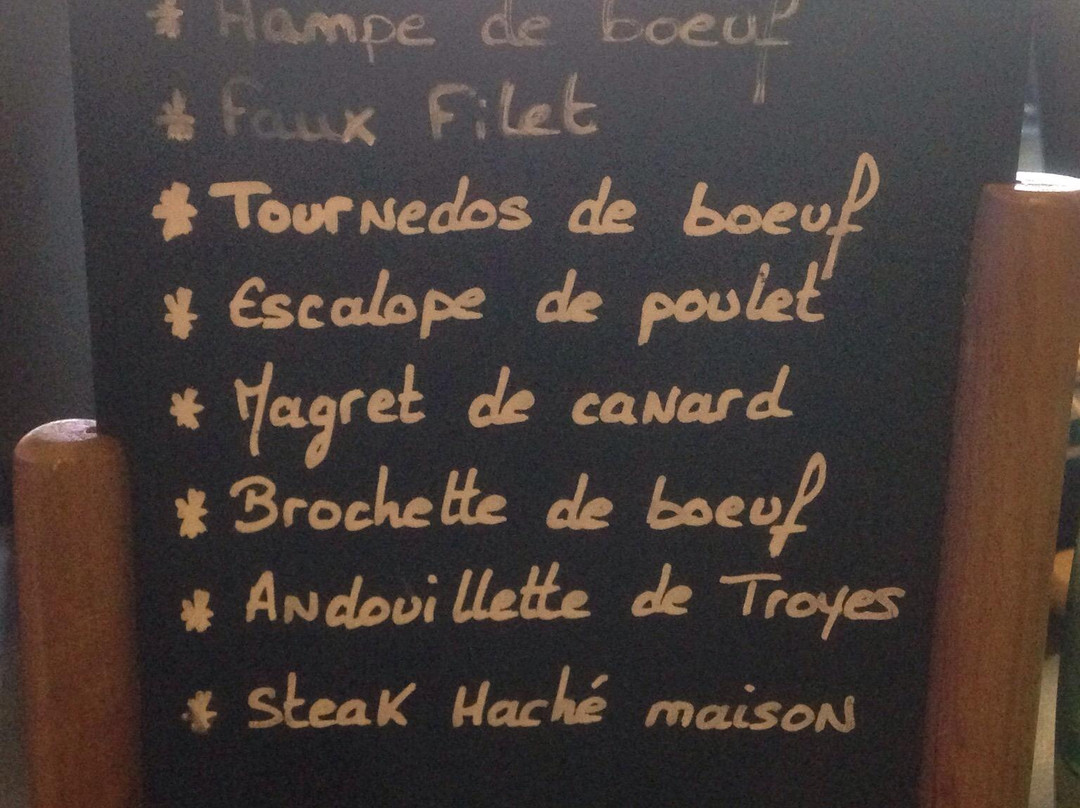 * Hampe de boeuf
* Faux Filet
* Tournedos de boeuf
* Escalope de poulet
* Magret de canard
* Brochette de boeuf
* Andouillette de Troyes
* Steak Haché maison